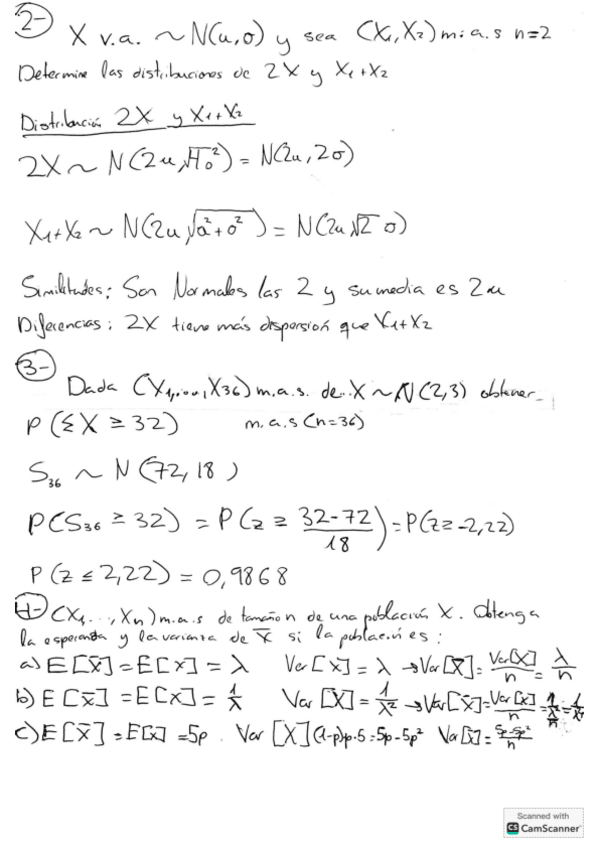 2-
X v.a. ~ N(u,σ) y sea (X1,X2) m.a.s n=2
Determine las distribuciones de 2X y X1+X2
Distribución 2X y X1+X2
2X ~ N(2u,√4σ²) = N(2u,2σ)
X1+X2 ~ N(2u,√σ²+σ²) = N(2u√2 σ)
Similitudes: Son Normales las 2 y su media es 2u
Diferencias: 2X tiene más dispersión que X1+X2
3-
Dada (X1,...,X36) m.a.s. de X ~ N(2,3) obtener
P(ΣX ≥ 32) m.a.s (n=36)
S36 ~ N(72,18)
P(S36 ≥ 32) = P(z ≥ 32-72/18) = P(z ≥ -2,22)
P(z ≤ 2,22) = 0,9868
4- (X1..., Xn) m.a.s de tamaño n de una población X. Obtenga
la esperanza y la varianza de X̄ si la población es:
a) E[X̄] = E[X] = λ Var[X] = λ → Var[X̄] = Var[X]/n = λ/n
b) E[X̄] = E[X] = 1/λ Var[X] = 1/λ² → Var[X̄] = Var[X]/n =
c) E[X̄] = E[X] = 5p. Var[X](1-p)p·5 = 5p-5p² Var[X̄] = 5p-5p²/n
Scanned with
CS CamScanner